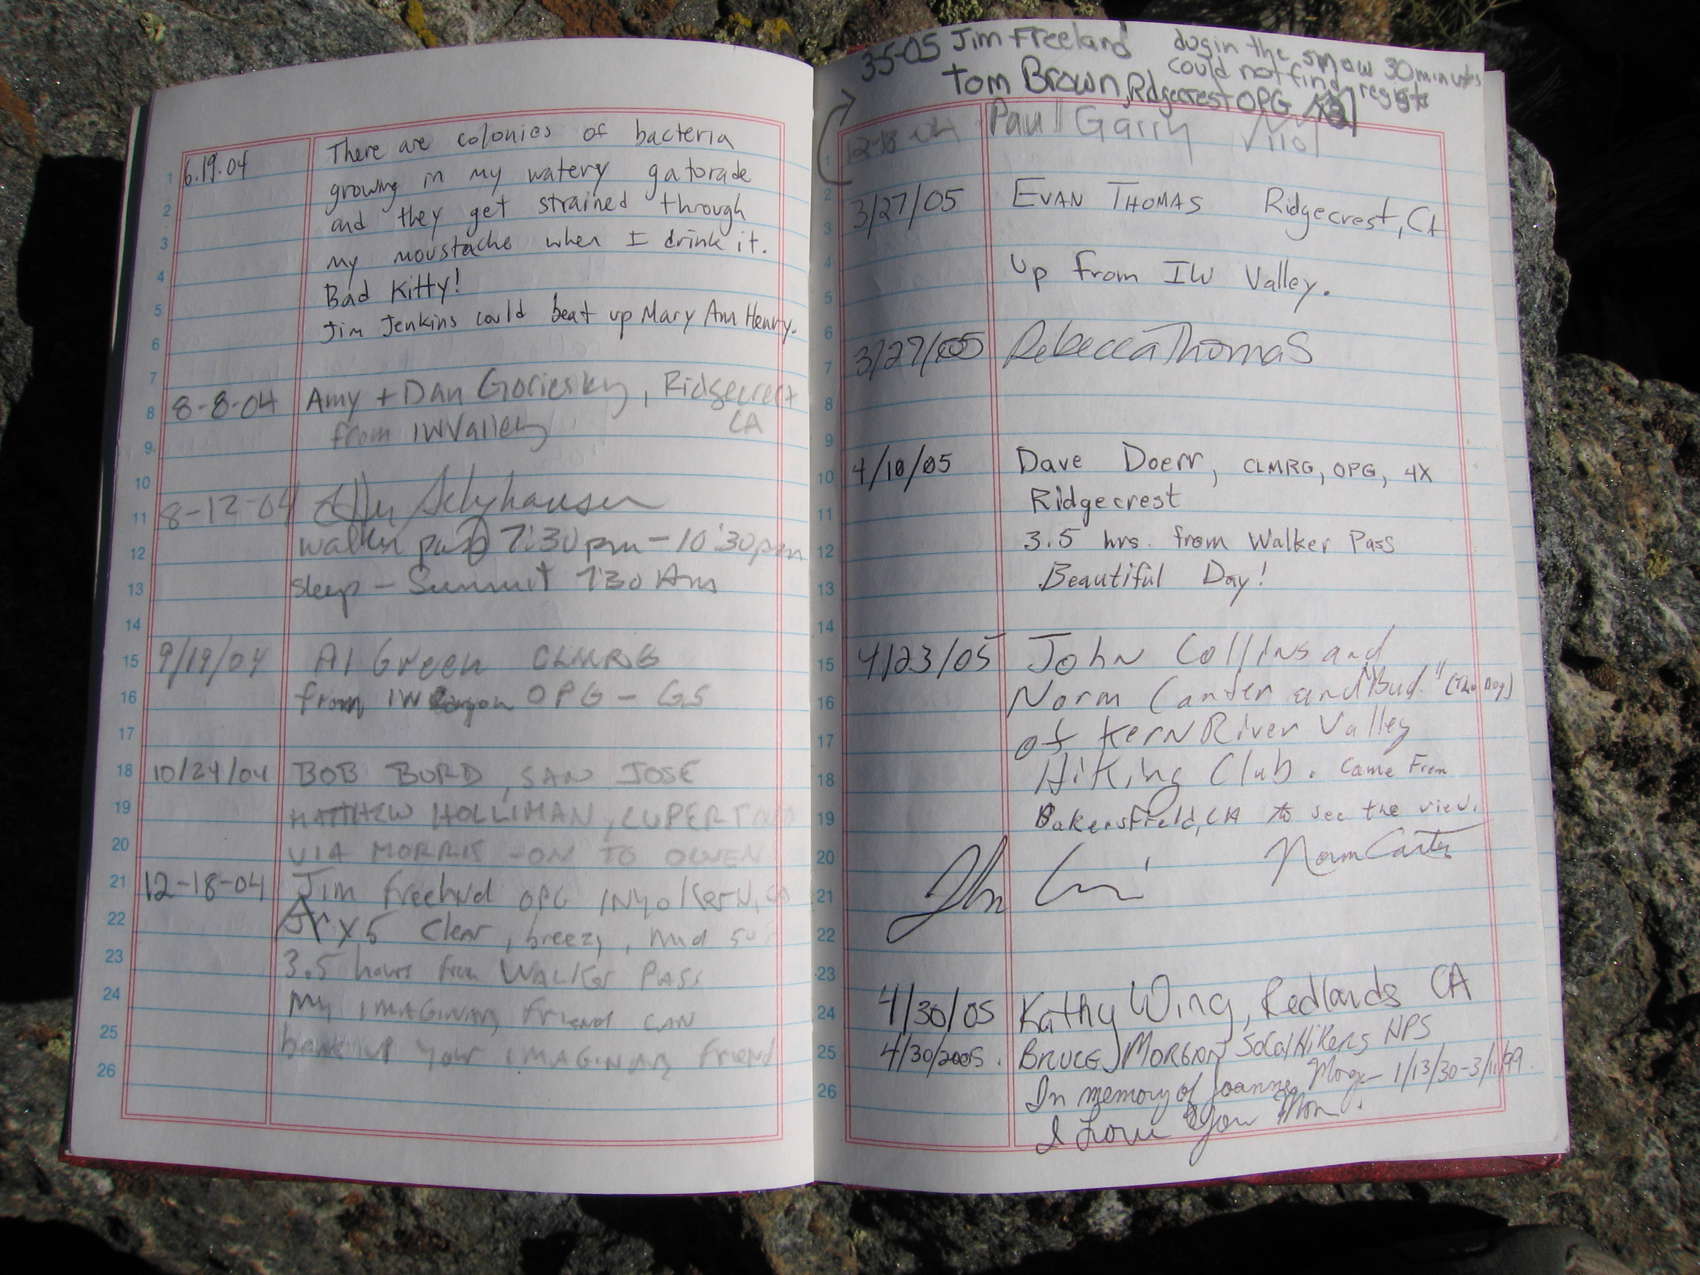 6.19.04 There are colonies of bacteria
growing in my watery gatorade
and they get strained through
my moustache when I drink it.
Bad Kitty!
Jim Jenkins could beat up Mary Ann Henry.
8-8-04 Amy + Dan Goriesky, Ridgecrest
from IWValley CA
8-12-04
walker pass 7:30 pm - 10:30pm
sleep - Summit 7:30 Am
9/19/04 Al Green CLMRG
from IW Canyon OPG - GS
10/24/04 BOB BURD, SAN JOSE
MATTHEW HOLLIMAN, CUPERTINO
VIA MORRIS - ON TO OWENS
12-18-04 Jim Freeland OPG INYOKERN, CA
x5 Clear, breezy, mid 50s
3.5 hours from WALKER PASS
My IMAGINARY friend CAN
beat up your IMAGINARY friend
3-5-05 Jim Freeland dug in the snow 30 minutes
could not find register
Tom Brown, Ridgecrest OPG
12-18 Paul Garry
3/27/05 EVAN THOMAS Ridgecrest, CA
Up from IW Valley.
3/27/05 Rebecca Thomas
4/10/05 Dave Doerr, CLMRG, OPG, 4X
Ridgecrest
3.5 hrs. from Walker Pass
Beautiful Day!
4/23/05 John Collins and
Norm Carter and "Bud" (The Dog)
of Kern River Valley
Hiking Club. Came From
Bakersfield, CA to see the view.
John Norm Carter
4/30/05 Kathy Wing, Redlands CA
4/30/2005. BRUCE MORGAN SoCalHikers NPS
In memory of Joanne 1/13/30-3/11/99.
I Love You Mom.